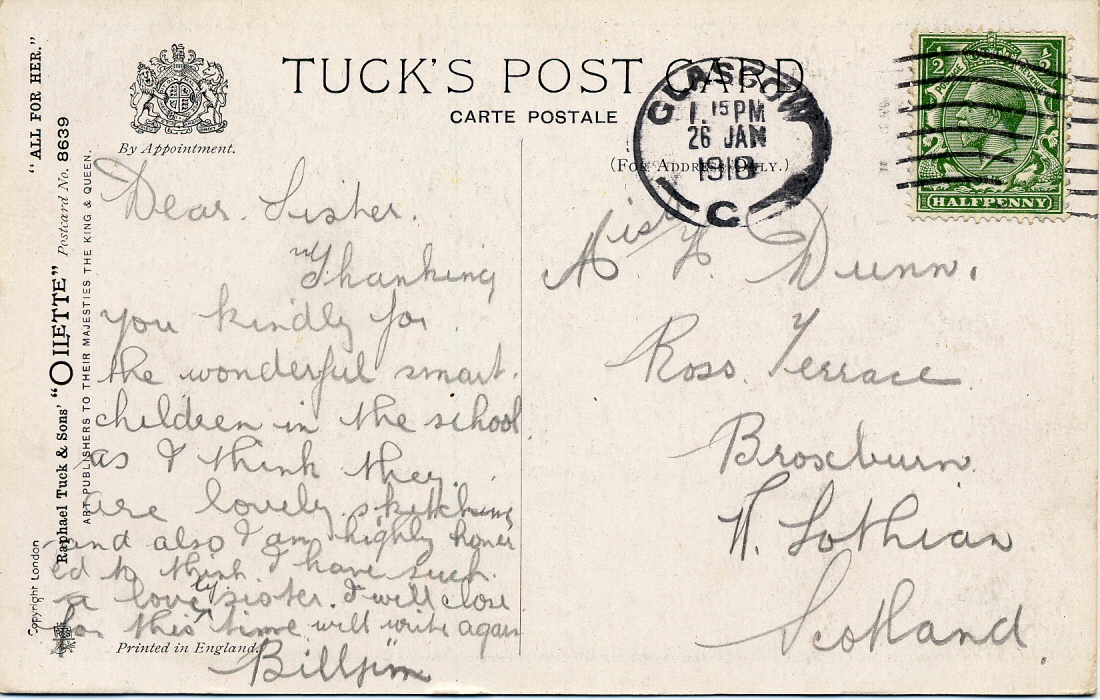 "ALL FOR HER."
Raphael Tuck & Sons' "OILETTE" Postcard No. 8639
ART PUBLISHERS TO THEIR MAJESTIES THE KING & QUEEN.
Copyright London
By Appointment.
TUCK'S POST CARD
CARTE POSTALE
(FOR ADDRESS ONLY.)
GLASGOW
1.15 PM
26 JAN
1918
C
1/2 1/2
POSTAGE REVENUE
HALFPENNY
Dear. Sister.
Thanking
you kindly for
the wonderful smart.
children in the school
as I think they.
are lovely sketching
and also I am highly honor
ed to think I have such.
a lovely sister. I will close
for this time will write again
Billjim
Printed in England.
Dunn.
Ross. Terrace
Broxburn.
W. Lothian
Scotland.